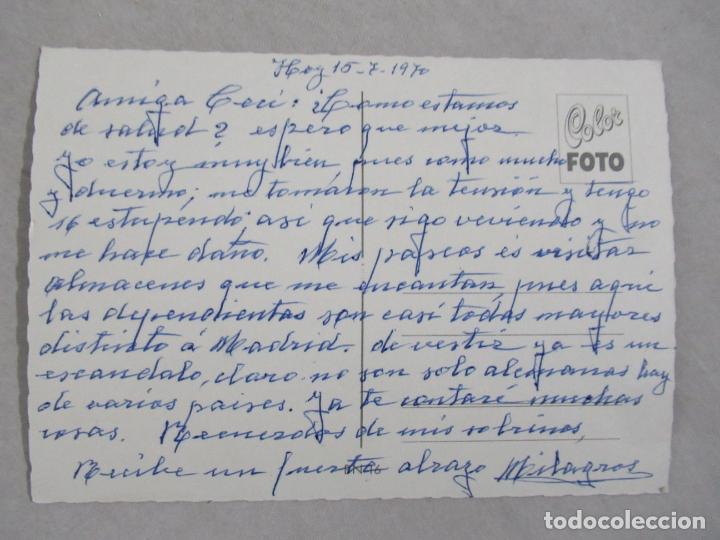 Hoy 15-7-1970
Amiga Ceci: ¿Como estamos
de salud? espero que mejor
yo estoy muy bien, pues como mucho
y duermo; me tomaron la tensión y tengo
16 estupendo; asi que sigo veviendo y no
me hace daño. Mis paseos es visitar
almacenes que me encantan, pues aqui
las dependientas son casi todas mayores
distinto á Madrid. de vestir ya es un
escandalo, claro no son solo alemanas hay
de varios paises. ya te contaré muchas
cosas. Recuerdos de mis sobrinos,
Recibe un fuerte abrazo Milagros
Color
FOTO
todocoleccion.net